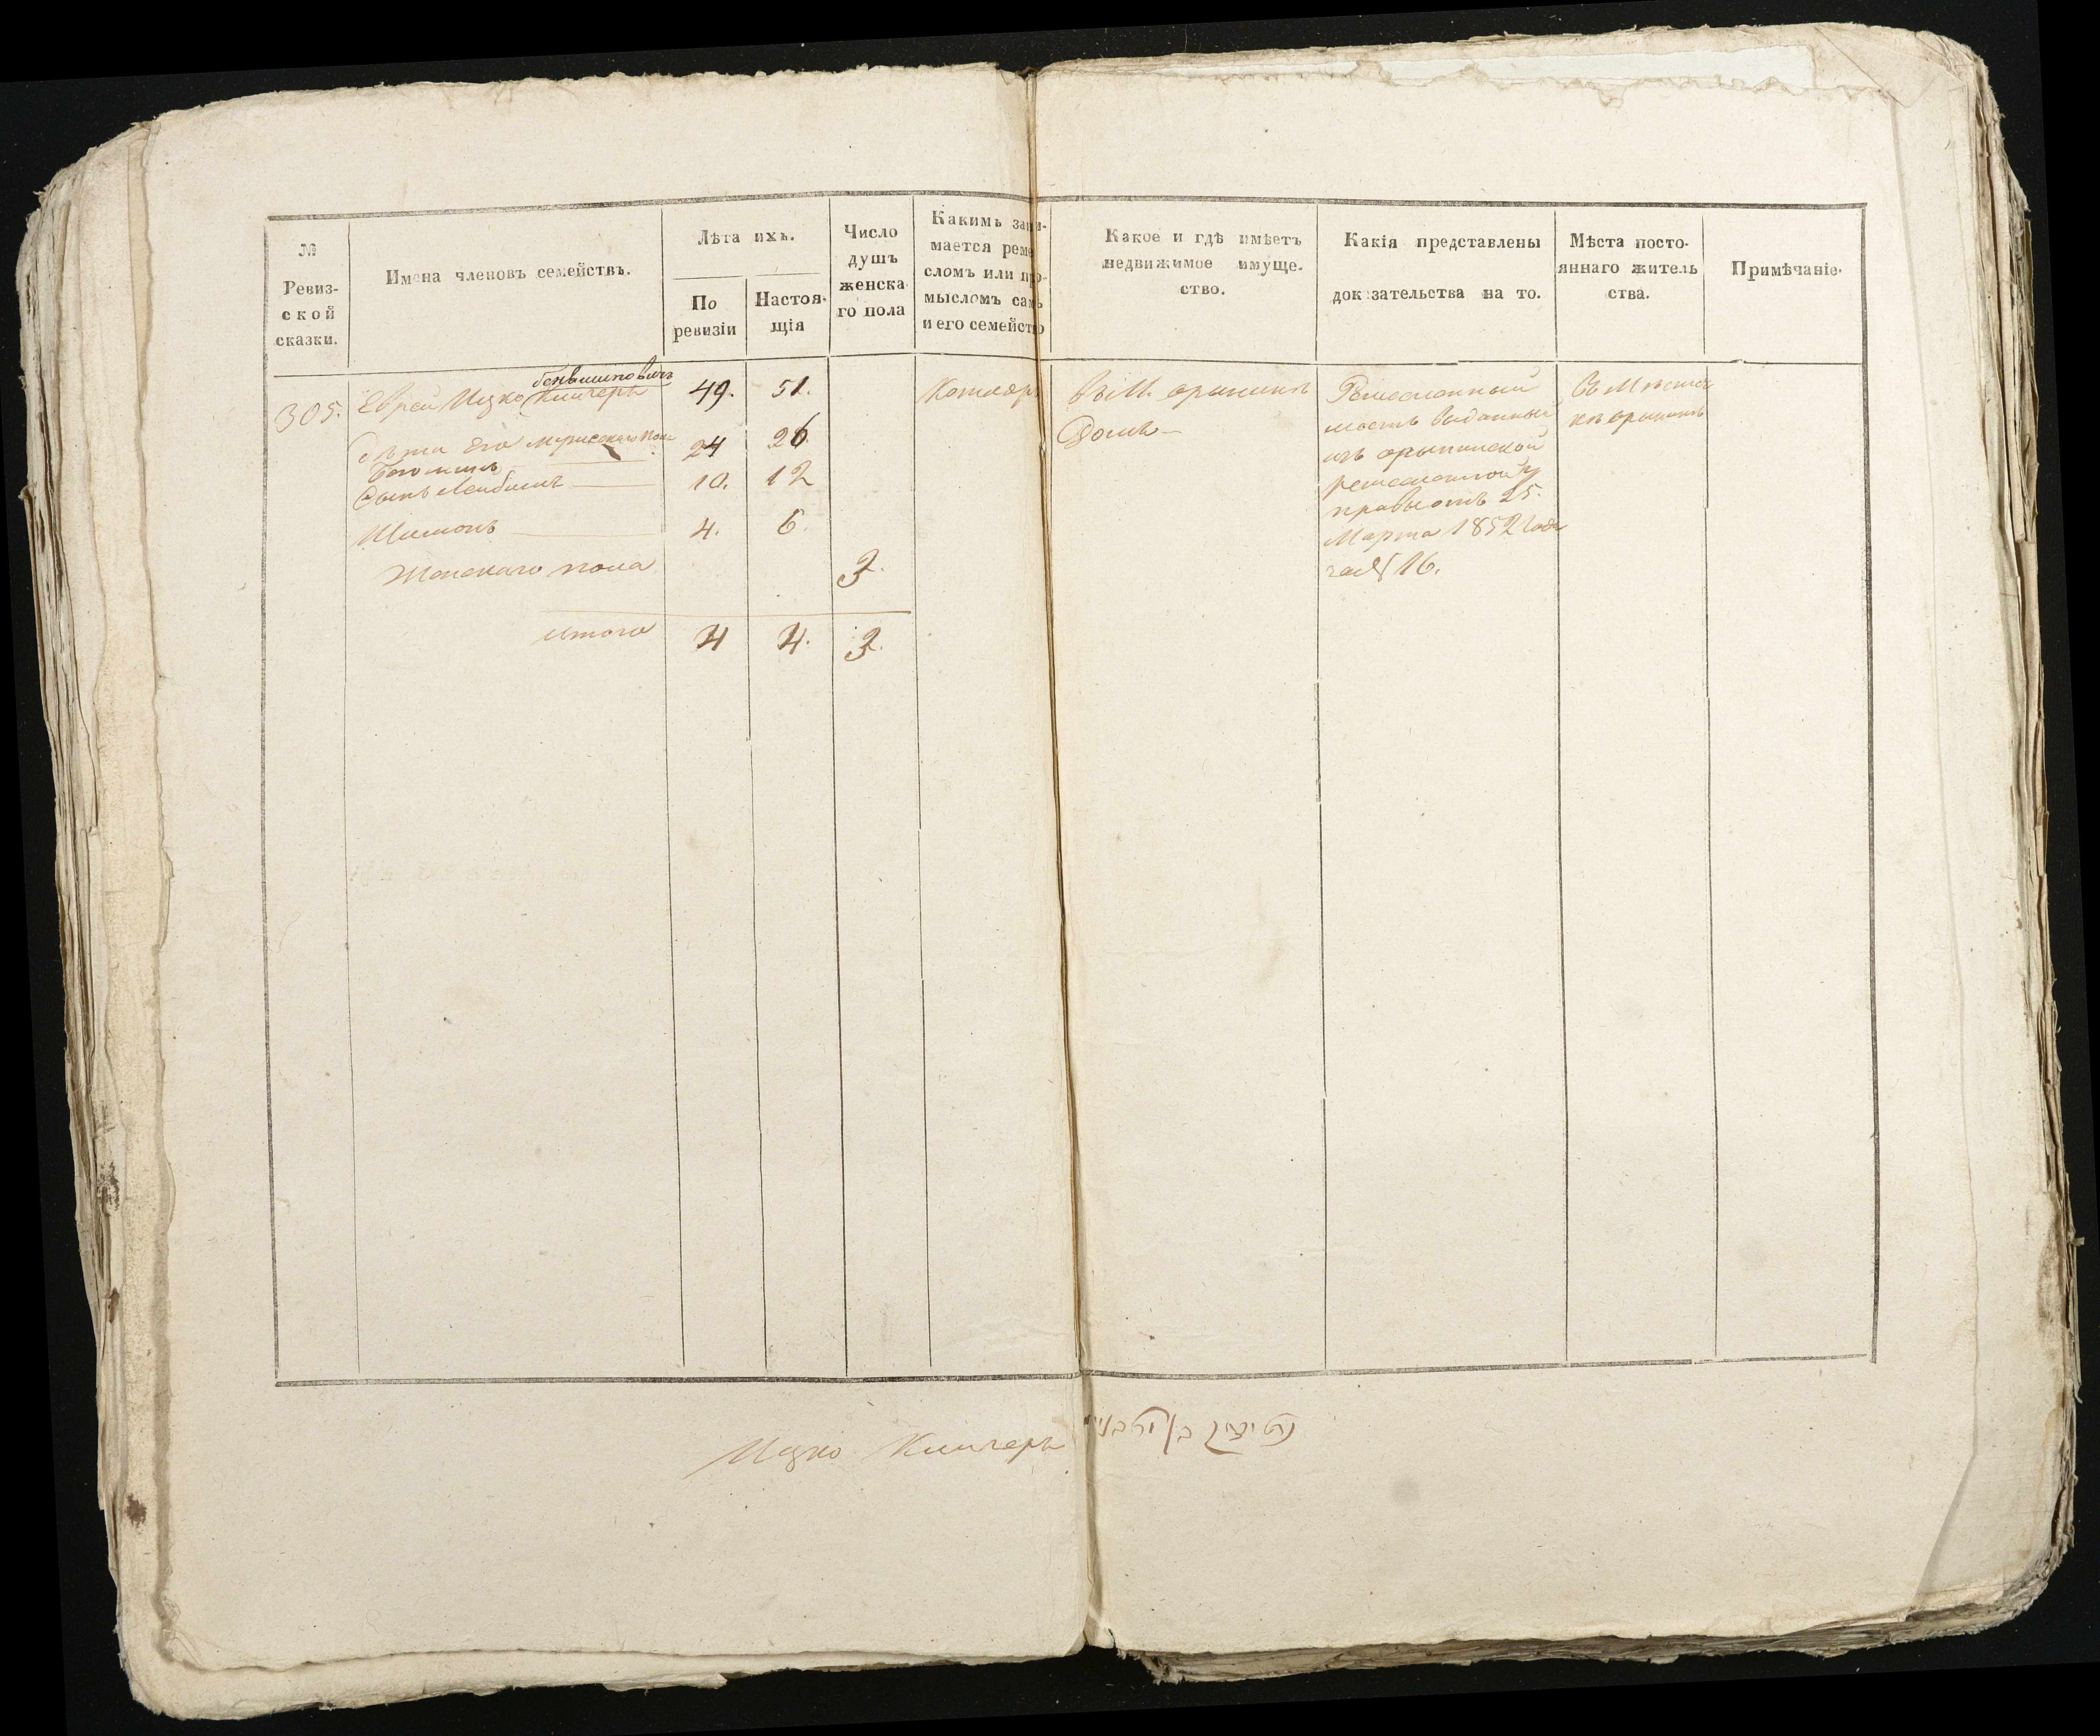 №
Ревиз-
ской
сказки.
Имена членовъ семействъ.
Лѣта ихъ.
По
ревизіи
Настоя-
щія
Число
душъ
женска-
го пола
Какимъ зани-
мается реме-
сломъ или про-
мысломъ самъ
и его семейство
Какое и гдѣ имѣетъ
недвижимое имуще-
ство.
Какія представлены
доказательства на то.
Мѣста посто-
яннаго житель
ства.
Примѣчаніе.
305.
Еврей Ицко
49.
51.
Котляръ
въ М.
Домъ —
Ремесленный
листъ выданный
изъ
ремесленной у
правы отъ 25.
Марта 1852 года
за № 16.
Въ Мѣстеч
кѣ
Дѣти его мужескаго пола
24
26
Сынъ Лейбишъ
10.
12
Шимонъ
4.
6.
Женскаго пола
3.
итого
4
4.
3.
Ицко